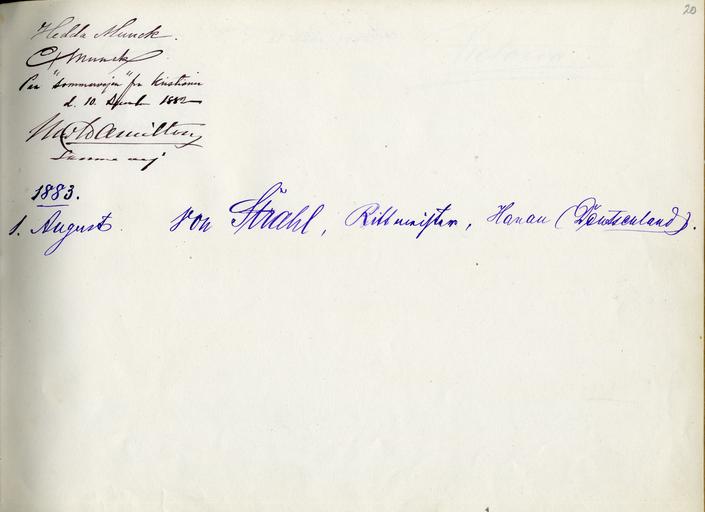 20
Hedda Munck.
C Munck
Paa "sommervejen" fra Kristiania
d. 10. 1882
Hamilton
Samme vej
1883.
1. August. von Strahl, Rittmeister, Hanau (Deutschland).